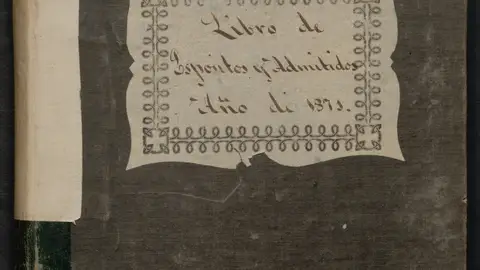 Libro de
Espósitos y Admitidos
Año de 1871.